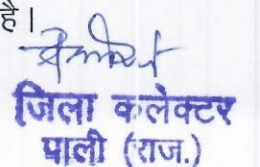 है।
जिला कलेक्टर
पाली (राज.)